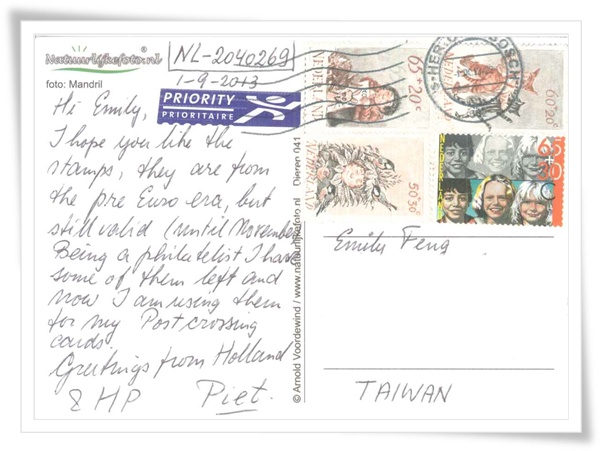 Natuurlijkefoto.nl
foto: Mandril
NL-2040269
1-9-2013
PRIORITY
PRIORITAIRE
Hi Emily,
I hope you like the
stamps, they are from
the pre Euro era, but
still valid (until November)
Being a philatelist I have
some of them left and
now I am using them
for my Postcrossing
cards.
Greetings from Holland
& HP Piet.
© Arnold Voordewind / www.natuurlijkefoto.nl Dieren 041
NEDERLAND
65+20c
60+20
50+30
NEDERLAND
65+20 C
Emily Feng
TAIWAN